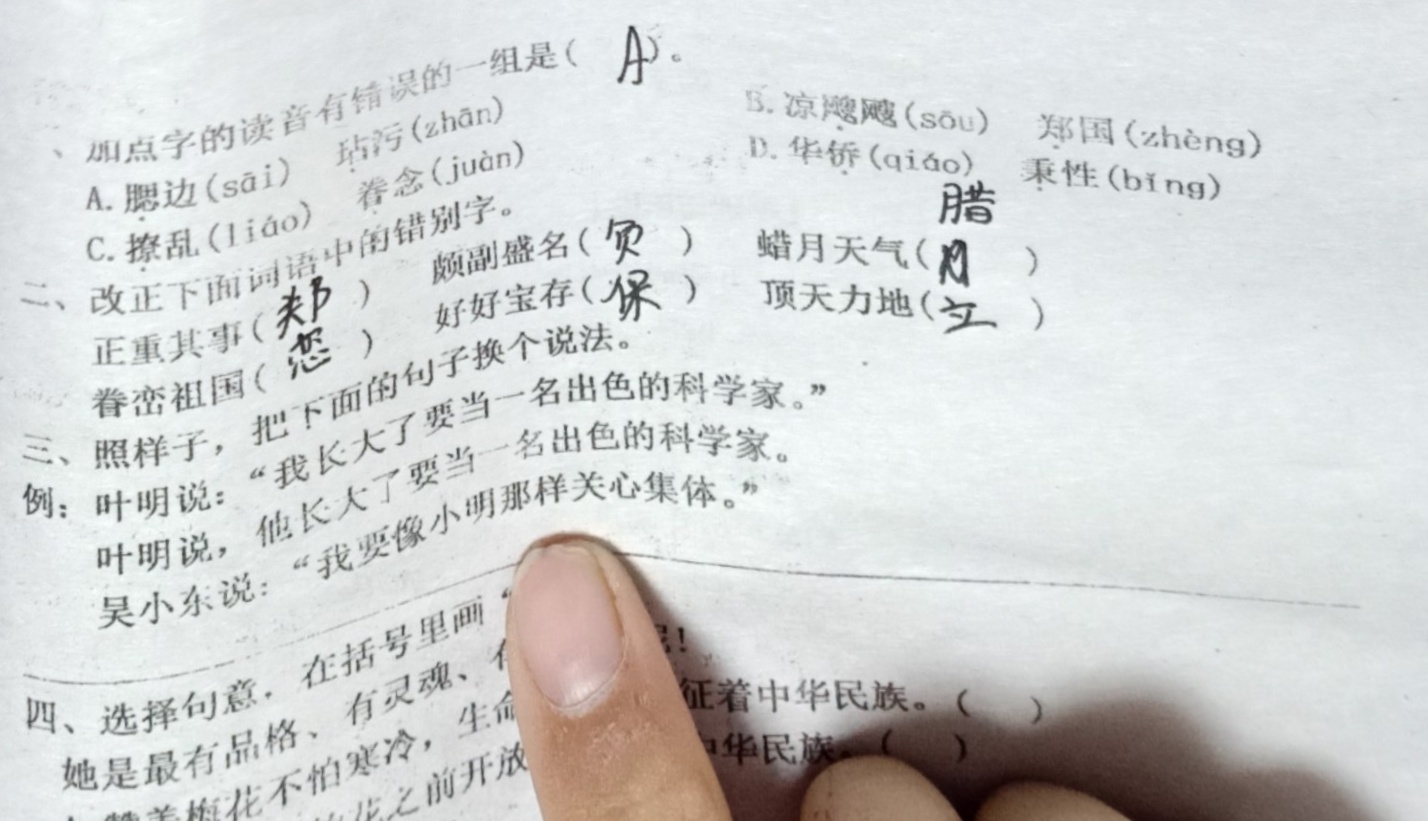 、加点字的读音有错误的一组是( A )。
A.腮边(sāi) 玷污(zhān) B.凉飕飕(sōu) 郑国(zhèng)
C.撩乱(liáo) 眷念(juàn) D.华侨(qiáo) 秉性(bǐng)
二、改正下面词语中的错别字。
腊
正重其事( 郑 ) 颇副盛名( 负 ) 蜡月天气( )
眷峦祖国( 恋 ) 好好宝存( 保 ) 顶天力地( 立 )
三、照样子，把下面的句子换个说法。
例：叶明说：“我长大了要当一名出色的科学家。”
叶明说，他长大了要当一名出色的科学家。
吴小东说：“我要像小明那样关心集体。”
四、选择句意，在括号里画“
她是最有品格、有灵魂、 呢！
不怕寒冷，生命 征着中华民族。( )
花之前开放 中华民族。( )